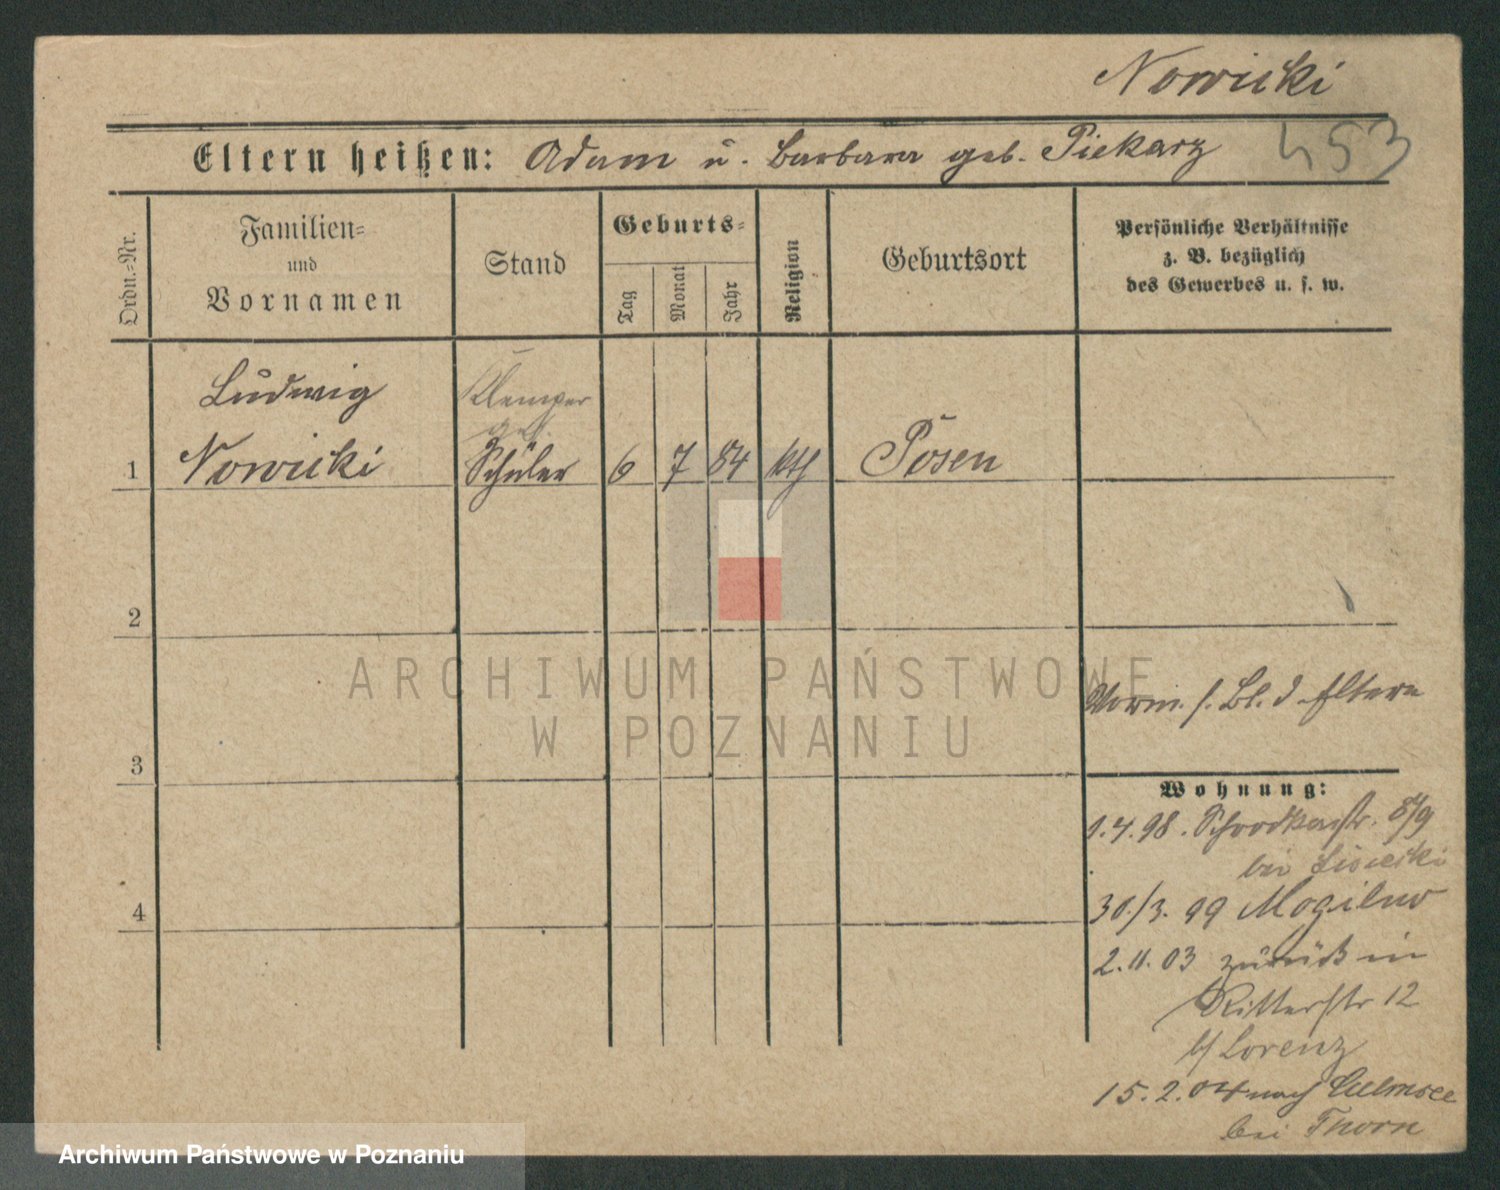 Nowicki
453
Eltern heißen: Adam u. Barbara geb. Piekarz
Ordn.=Nr.
Familien=
und
Vornamen
Stand
Geburts=
Tag
Monat
Jahr
Religion
Geburtsort
Persönliche Verhältnisse
z. B. bezüglich
des Gewerbes u. s. w.
Ludwig
Klemper
1 Nowicki Schüler 6 7 84 kth Posen
2
ARCHIWUM PAŃSTWOWE
W POZNANIU
Vorm. s. Bl. d Eltern
3
Wohnung:
1.4.98. Schrodkastr. 8/9
bei
4
30./3. 99 Mogilno
2.11.03 zurück in
Ritterstr 12
b/ Lorenz
15.2.04 nach Culmsee
bei Thorn
Archiwum Państwowe w Poznaniu